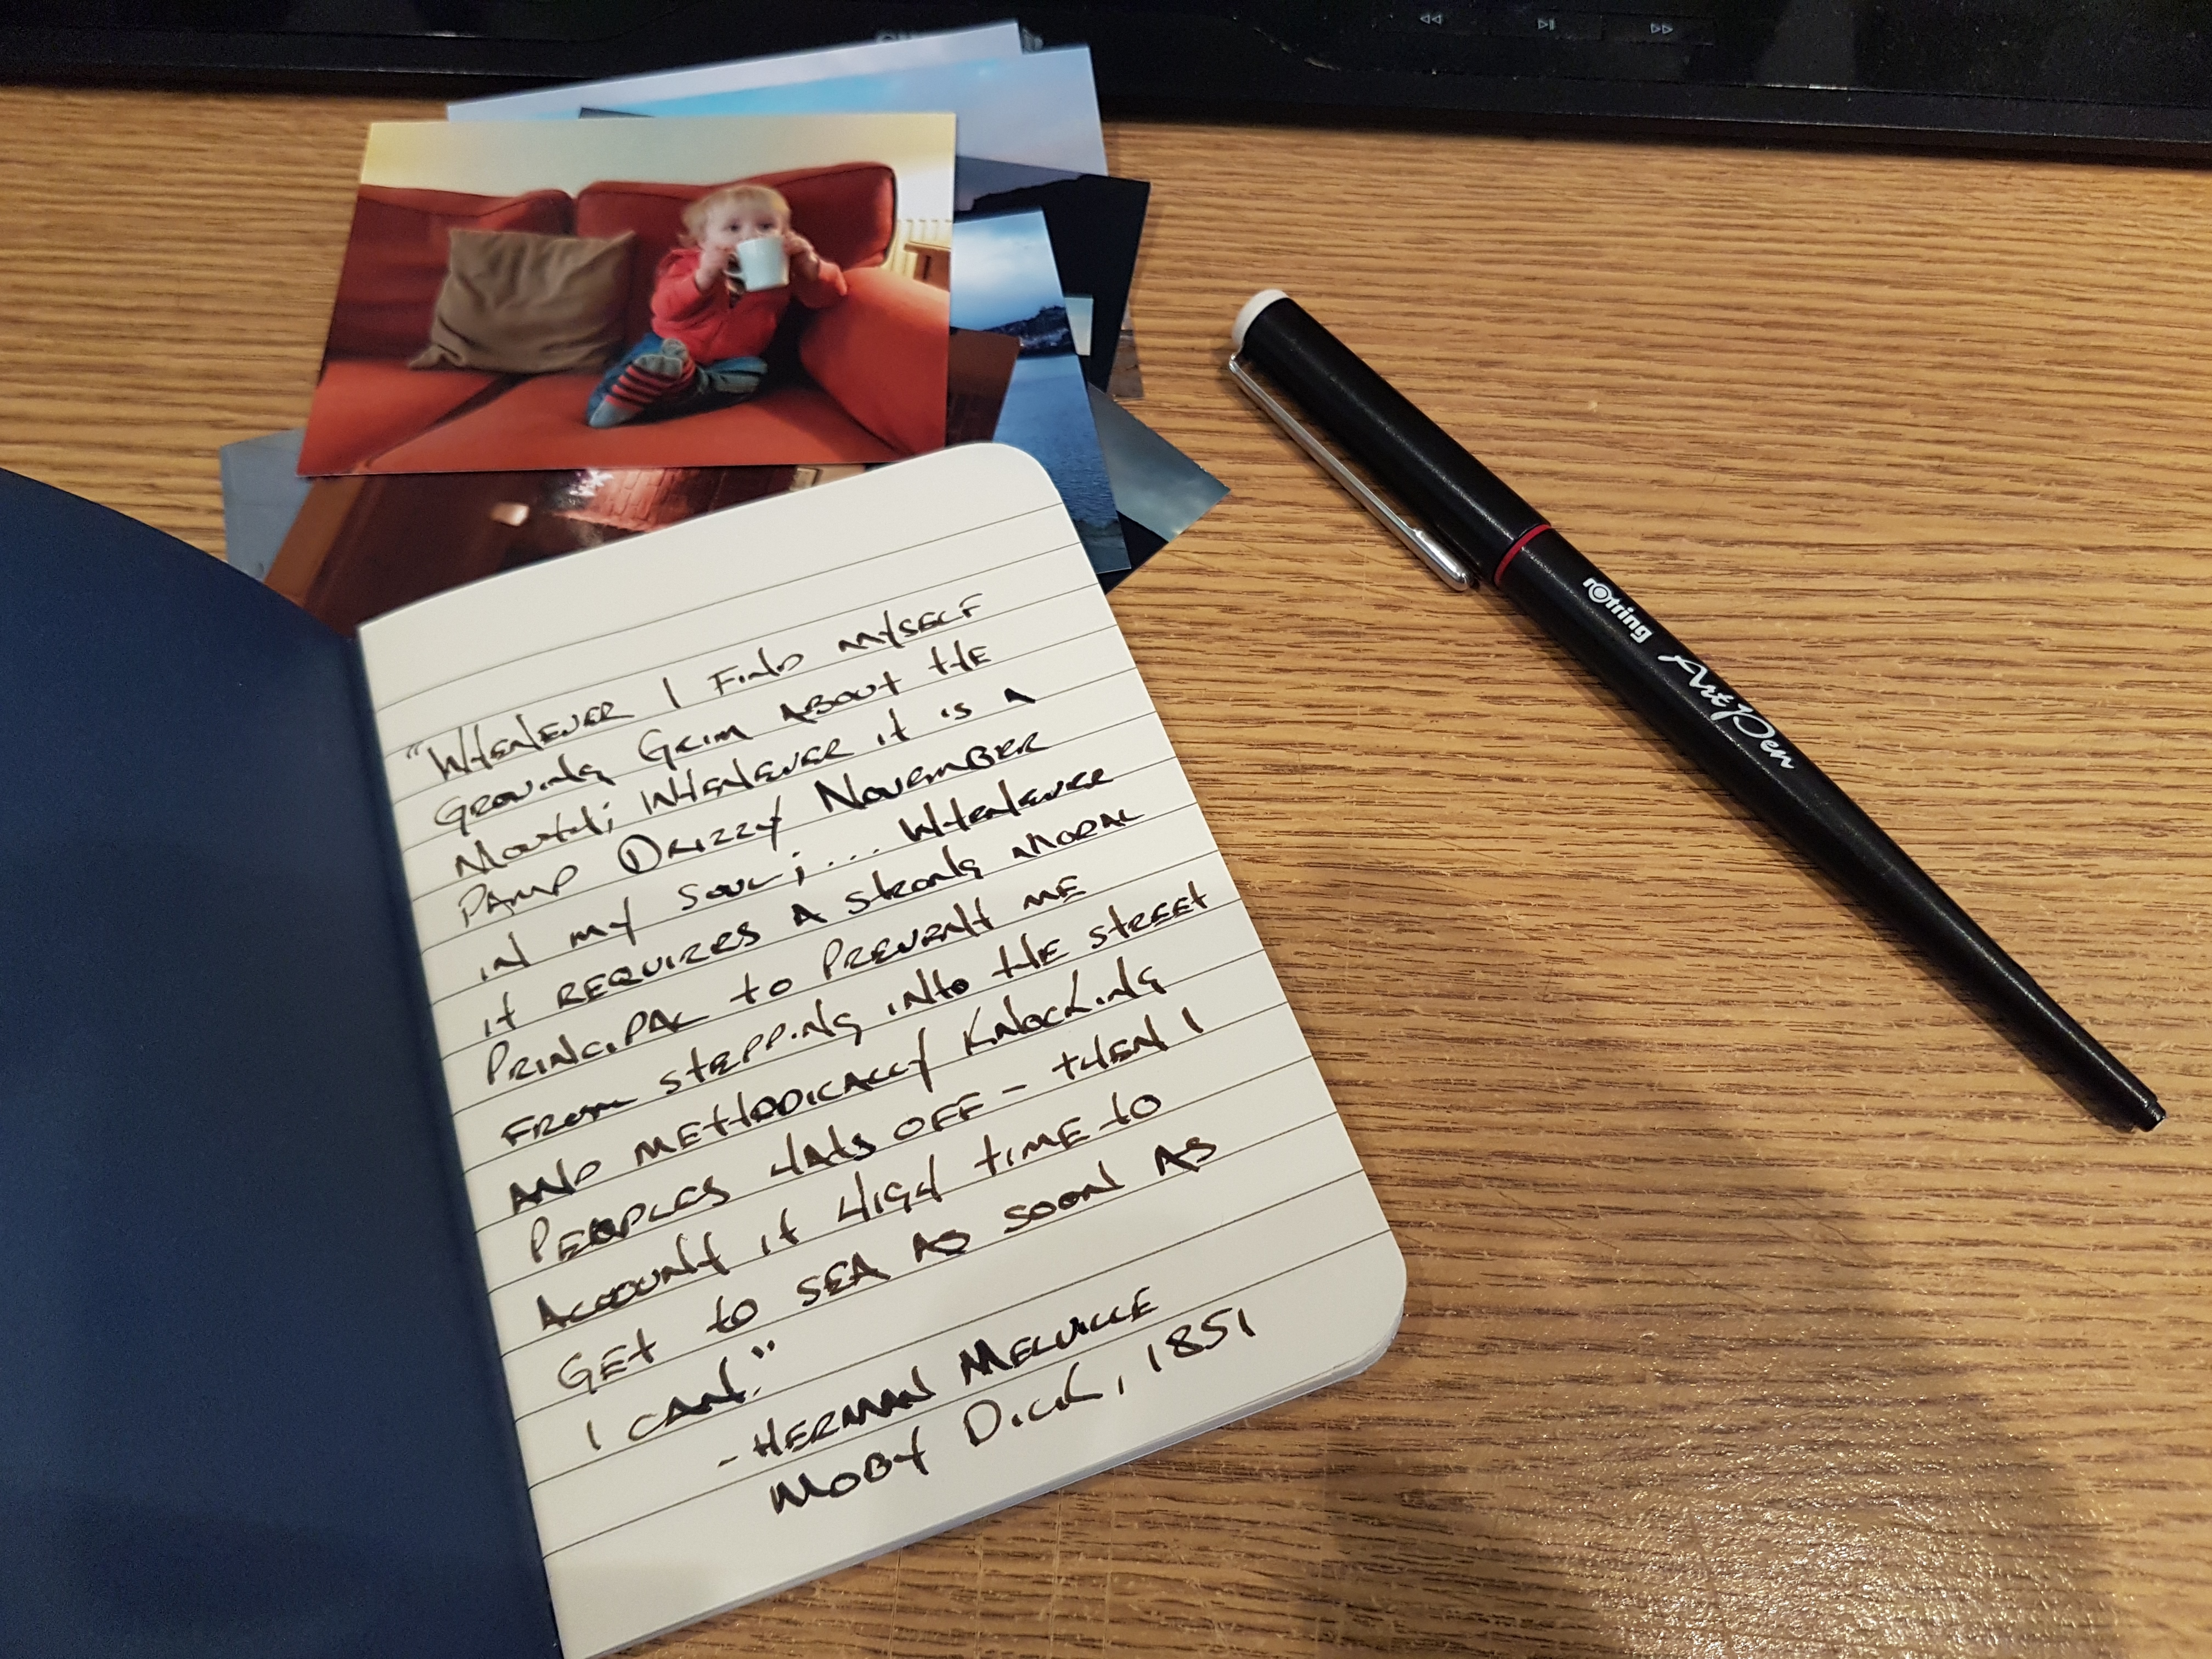 "Whenever I find myself
growing grim about the
mouth; whenever it is a
damp drizzy November
in my soul; ... whenever
it requires a strong moral
principal to prevent me
from stepping into the street
and methodically knocking
peoples hats off - then I
account it high time to
get to sea as soon as
I can."
- Herman Melville
Moby Dick, 1851
rOtring ArtPen